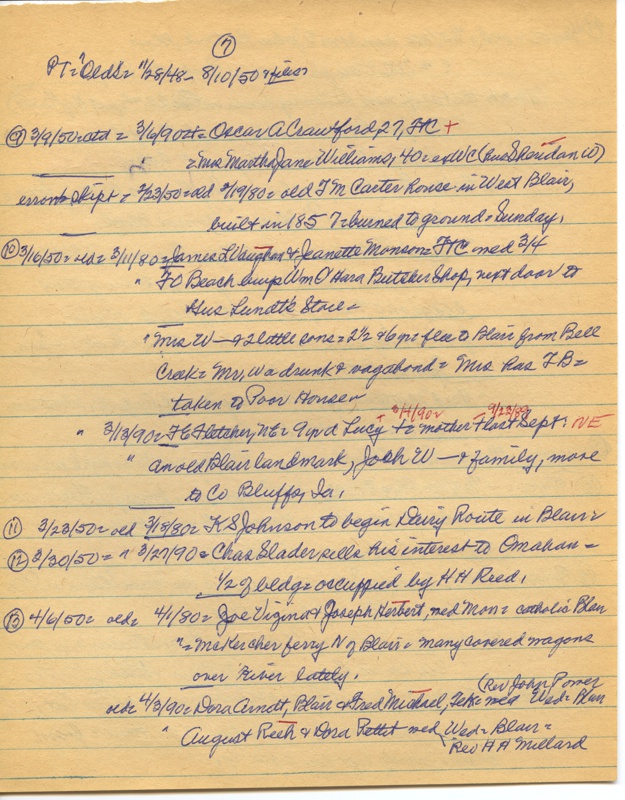 7
PT = "Olds" = 11/28/48 - 8/10/50
9 3/9/50 = old = 3/6/90 = Oscar A Crawford, 27, FtC +
= Mrs Martha Jane Williams, 40 = exWC (Rus Sheridan W)
error skipt = 2/23/50 = old 2/19/80 = old J M Carter House in West Blair,
built in 1857 = burned to ground = Sunday.
10 3/16/50 = old = 3/11/80 = James L Vaughan & Jeanette Monson = FtC med 3/4
" FO Beach buys Wm O'Hara Butcher Shop, next door to
Gus Lundt's Store =
" Mrs W— & 2 little sons = 2 1/2 & 6 yr = flee to Blair from Bell
Creek = Mr, W a drunk & vagabond = Mrs has TB =
taken to Poor House =
3/11/90 9/23/89
" 3/13/90 = FE Fletcher, NE = 9 yr d Lucy + = mother + last Sept. NE
" an old Blair landmark, Josh W— & family, move
to Co Bluffs, Ia.
11 3/23/50 = old 3/18/80 = K S Johnson to begin Dairy Route in Blair =
12 3/30/50 = " 3/27/90 = Chas Slader sells his interest to Omahan =
1/2 of bldg = occupied by H H Reed.
13 4/6/50 = old = 4/1/80 = Joe Vizina & Joseph Herbert, med Mon = catholic Blair
" = McKercher ferry N of Blair = many covered wagons
over River lately.
(Rev John Power
old = 4/3/90 = Dora Arndt, Blair & Fred Michael, Teka med Wed = Blair
" August Reeh & Dora Pettet med Wed = Blair =
Rev H H Millard